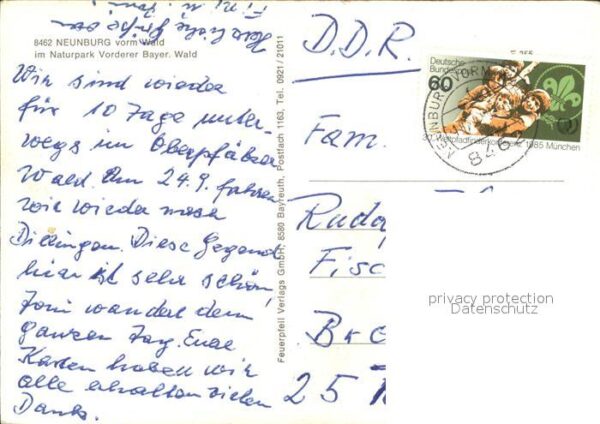 8462 NEUNBURG vorm Wald
im Naturpark Vorderer Bayer. Wald
Wir sind wieder
für 10 Tage unter-
wegs im Oberpfälzer
Wald. Am 24.9. fahren
wir wieder nach
Dillingen. Diese Gegend
hier ist sehr schön,
wandern den
ganzen Tag. Eure
Karten haben wir
alle erhalten vielen
Dank.
Herzliche Grüße von
Feuerpfeil Verlags GmbH, 8580 Bayreuth, Postfach 1163, Tel. 0921/21011
D.D.R.
Deutsche
Bundes
60
30. Weltpfadfinderkonferenz 1985 München
NEUNBURG VORM
846
Fam.
Rudo
Fisc
Bro
25
privacy protection
Datenschutz